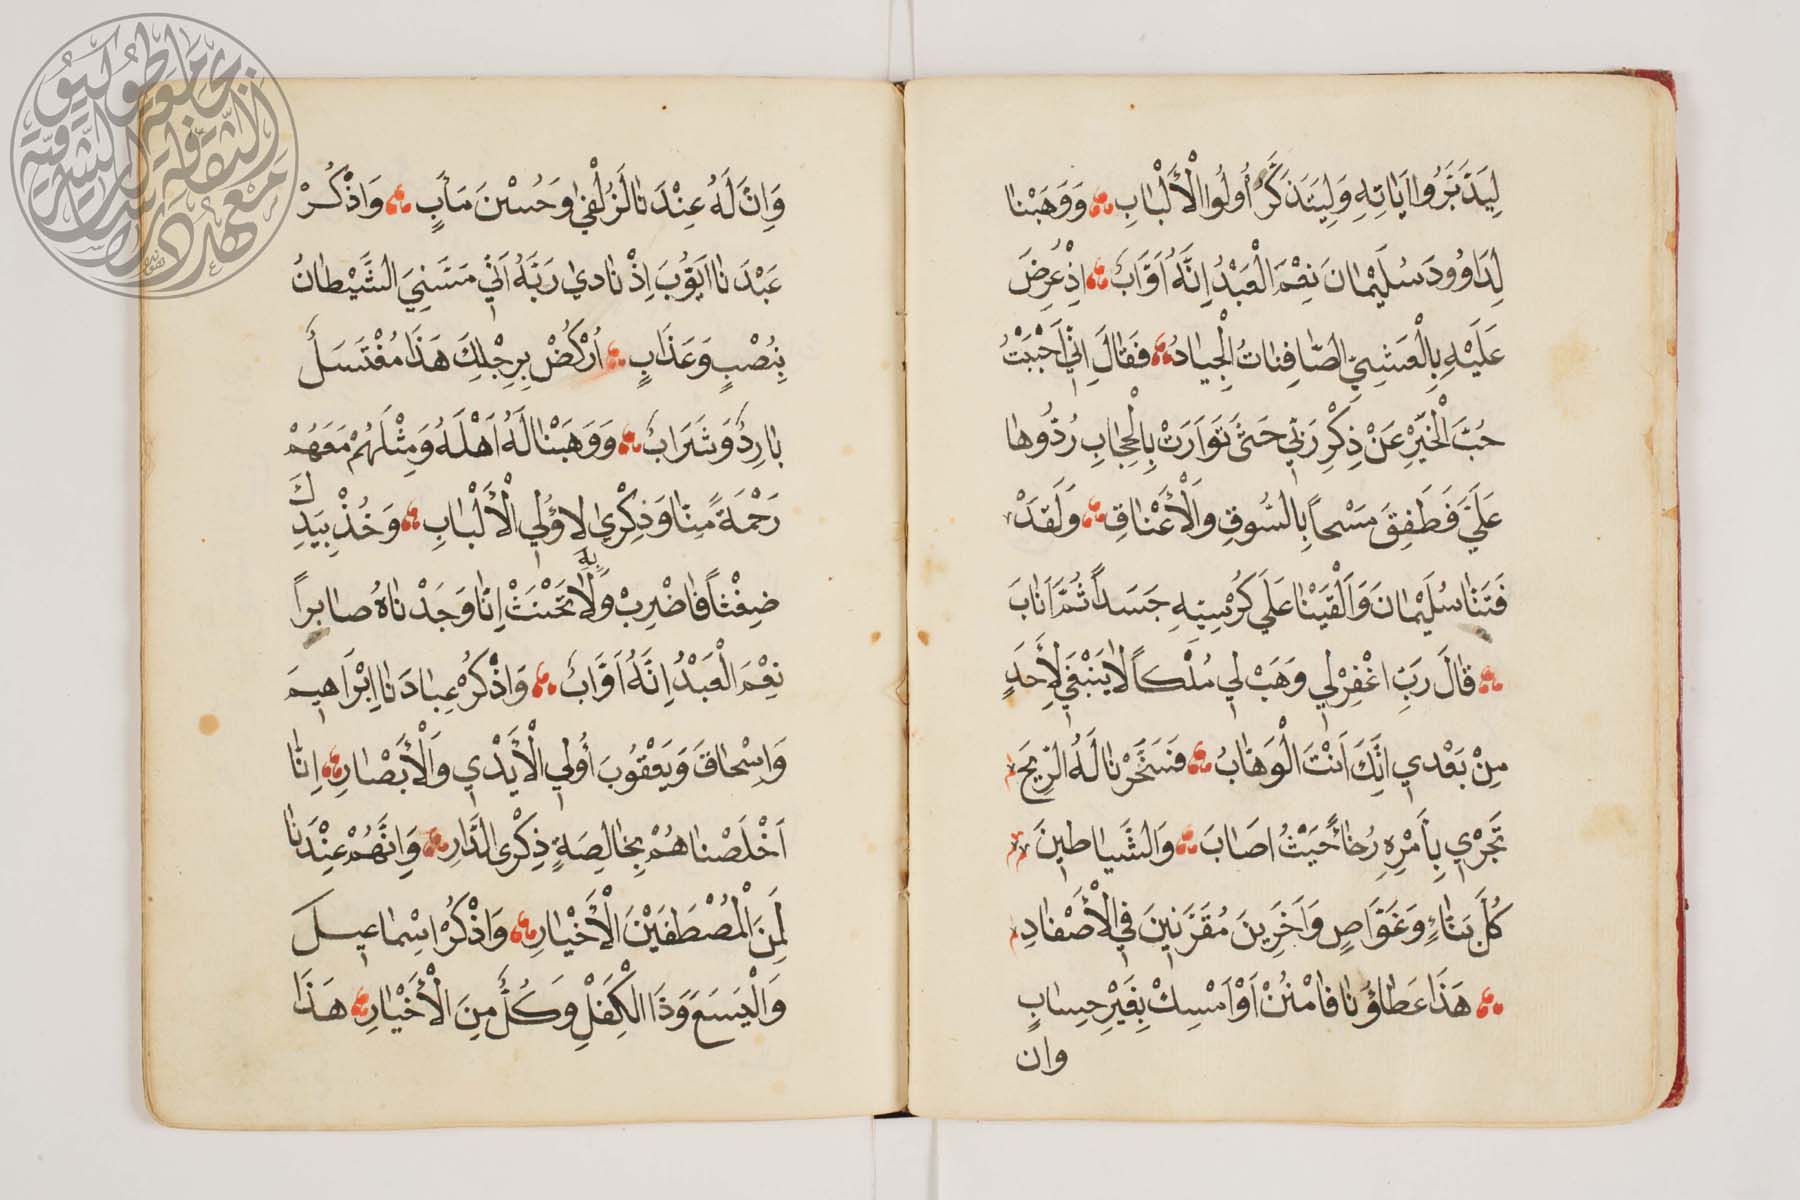 لِيَدَّبَّرُوا اٰيَاتِهِ وَلِيَتَذَكَّرَ أُولُوا الْأَلْبَابِ وَوَهَبْنَا
لِدَاوُودَ سُلَيْمَانَ نِعْمَ الْعَبْدُ اِنَّهُ اَوَّابٌ اِذْ عُرِضَ
عَلَيْهِ بِالْعَشِيِّ الصَّافِنَاتُ الْجِيَادُ فَقَالَ اِنِّي اَحْبَبْتُ
حُبَّ الْخَيْرِ عَنْ ذِكْرِ رَبِّي حَتَّى تَوَارَتْ بِالْحِجَابِ رُدُّوهَا
عَلَيَّ فَطَفِقَ مَسْحاً بِالسُّوقِ وَالْأَعْنَاقِ وَلَقَدْ
فَتَنَّا سُلَيْمَانَ وَاَلْقَيْنَا عَلَى كُرْسِيِّهِ جَسَداً ثُمَّ اَنَابَ
قَالَ رَبِّ اغْفِرْ لِي وَهَبْ لِي مُلْكاً لَا يَنْبَغِي لِأَحَدٍ
مِنْ بَعْدِي اِنَّكَ اَنْتَ الْوَهَّابُ فَسَخَّرْنَا لَهُ الرِّيحَ
تَجْرِي بِأَمْرِهِ رُخَاءً حَيْثُ اَصَابَ وَالشَّيَاطِينَ
كُلَّ بَنَّاءٍ وَغَوَّاصٍ وَاٰخَرِينَ مُقَرَّنِينَ فِي الْأَصْفَادِ
هَذَا عَطَاؤُنَا فَامْنُنْ اَوْ اَمْسِكْ بِغَيْرِ حِسَابٍ
وان
وَاِنَّ لَهُ عِنْدَنَا لَزُلْفٰى وَحُسْنَ مَأَبٍ وَاذْكُرْ
عَبْدَنَا اَيُّوبَ اِذْ نَادٰى رَبَّهُ اَنِّي مَسَّنِيَ الشَّيْطَانُ
بِنُصْبٍ وَعَذَابٍ اُرْكُضْ بِرِجْلِكَ هَذَا مُغْتَسَلٌ
بَارِدٌ وَشَرَابٌ وَوَهَبْنَا لَهُ اَهْلَهُ وَمِثْلَهُمْ مَعَهُمْ
رَحْمَةً مِنَّا وَذِكْرٰى لِاُولِي الْأَلْبَابِ وَخُذْ بِيَدِكَ
ضِغْثاً فَاضْرِبْ بِهِ وَلَا تَحْنَثْ اِنَّا وَجَدْنَاهُ صَابِراً
نِعْمَ الْعَبْدُ اِنَّهُ اَوَّابٌ وَاذْكُرْ عِبَادَنَا اِبْرَاهِيمَ
وَاِسْحَاقَ وَيَعْقُوبَ أُولِي الْأَيْدِي وَالْأَبْصَارِ اِنَّا
اَخْلَصْنَاهُمْ بِخَالِصَةٍ ذِكْرَى الدَّارِ وَاِنَّهُمْ عِنْدَنَا
لَمِنَ الْمُصْطَفَيْنَ الْأَخْيَارِ وَاذْكُرْ اِسْمَاعِيلَ
وَالْيَسَعَ وَذَا الْكِفْلِ وَكُلٌّ مِنَ الْأَخْيَارِ هَذَا
جامعة طوكيو
معهد دراسات الثقافة الشرقية